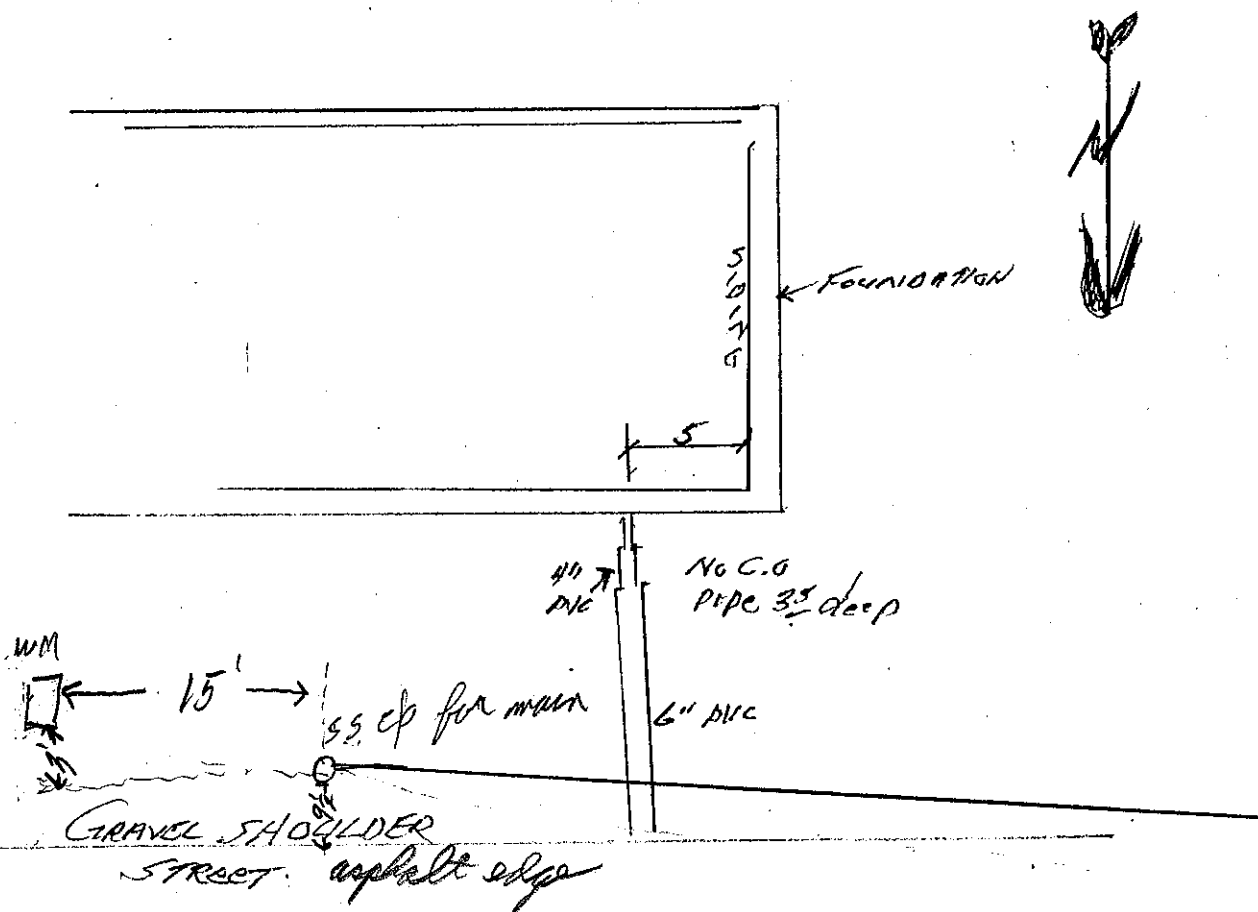 N
SIDING
FOUNDATION
5
4"
PVC
No C.O
PIPE 3.5' deep
WM
15'
S.S. cp for main
6" PVC
3'
GRAVEL SHOULDER
STREET. asphalt edge